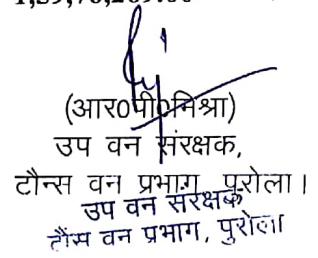 (आर0पी0मिश्रा)
उप वन संरक्षक,
टौन्स वन प्रभाग, पुरोला।
उप वन संरक्षक
टौंस वन प्रभाग, पुरोला